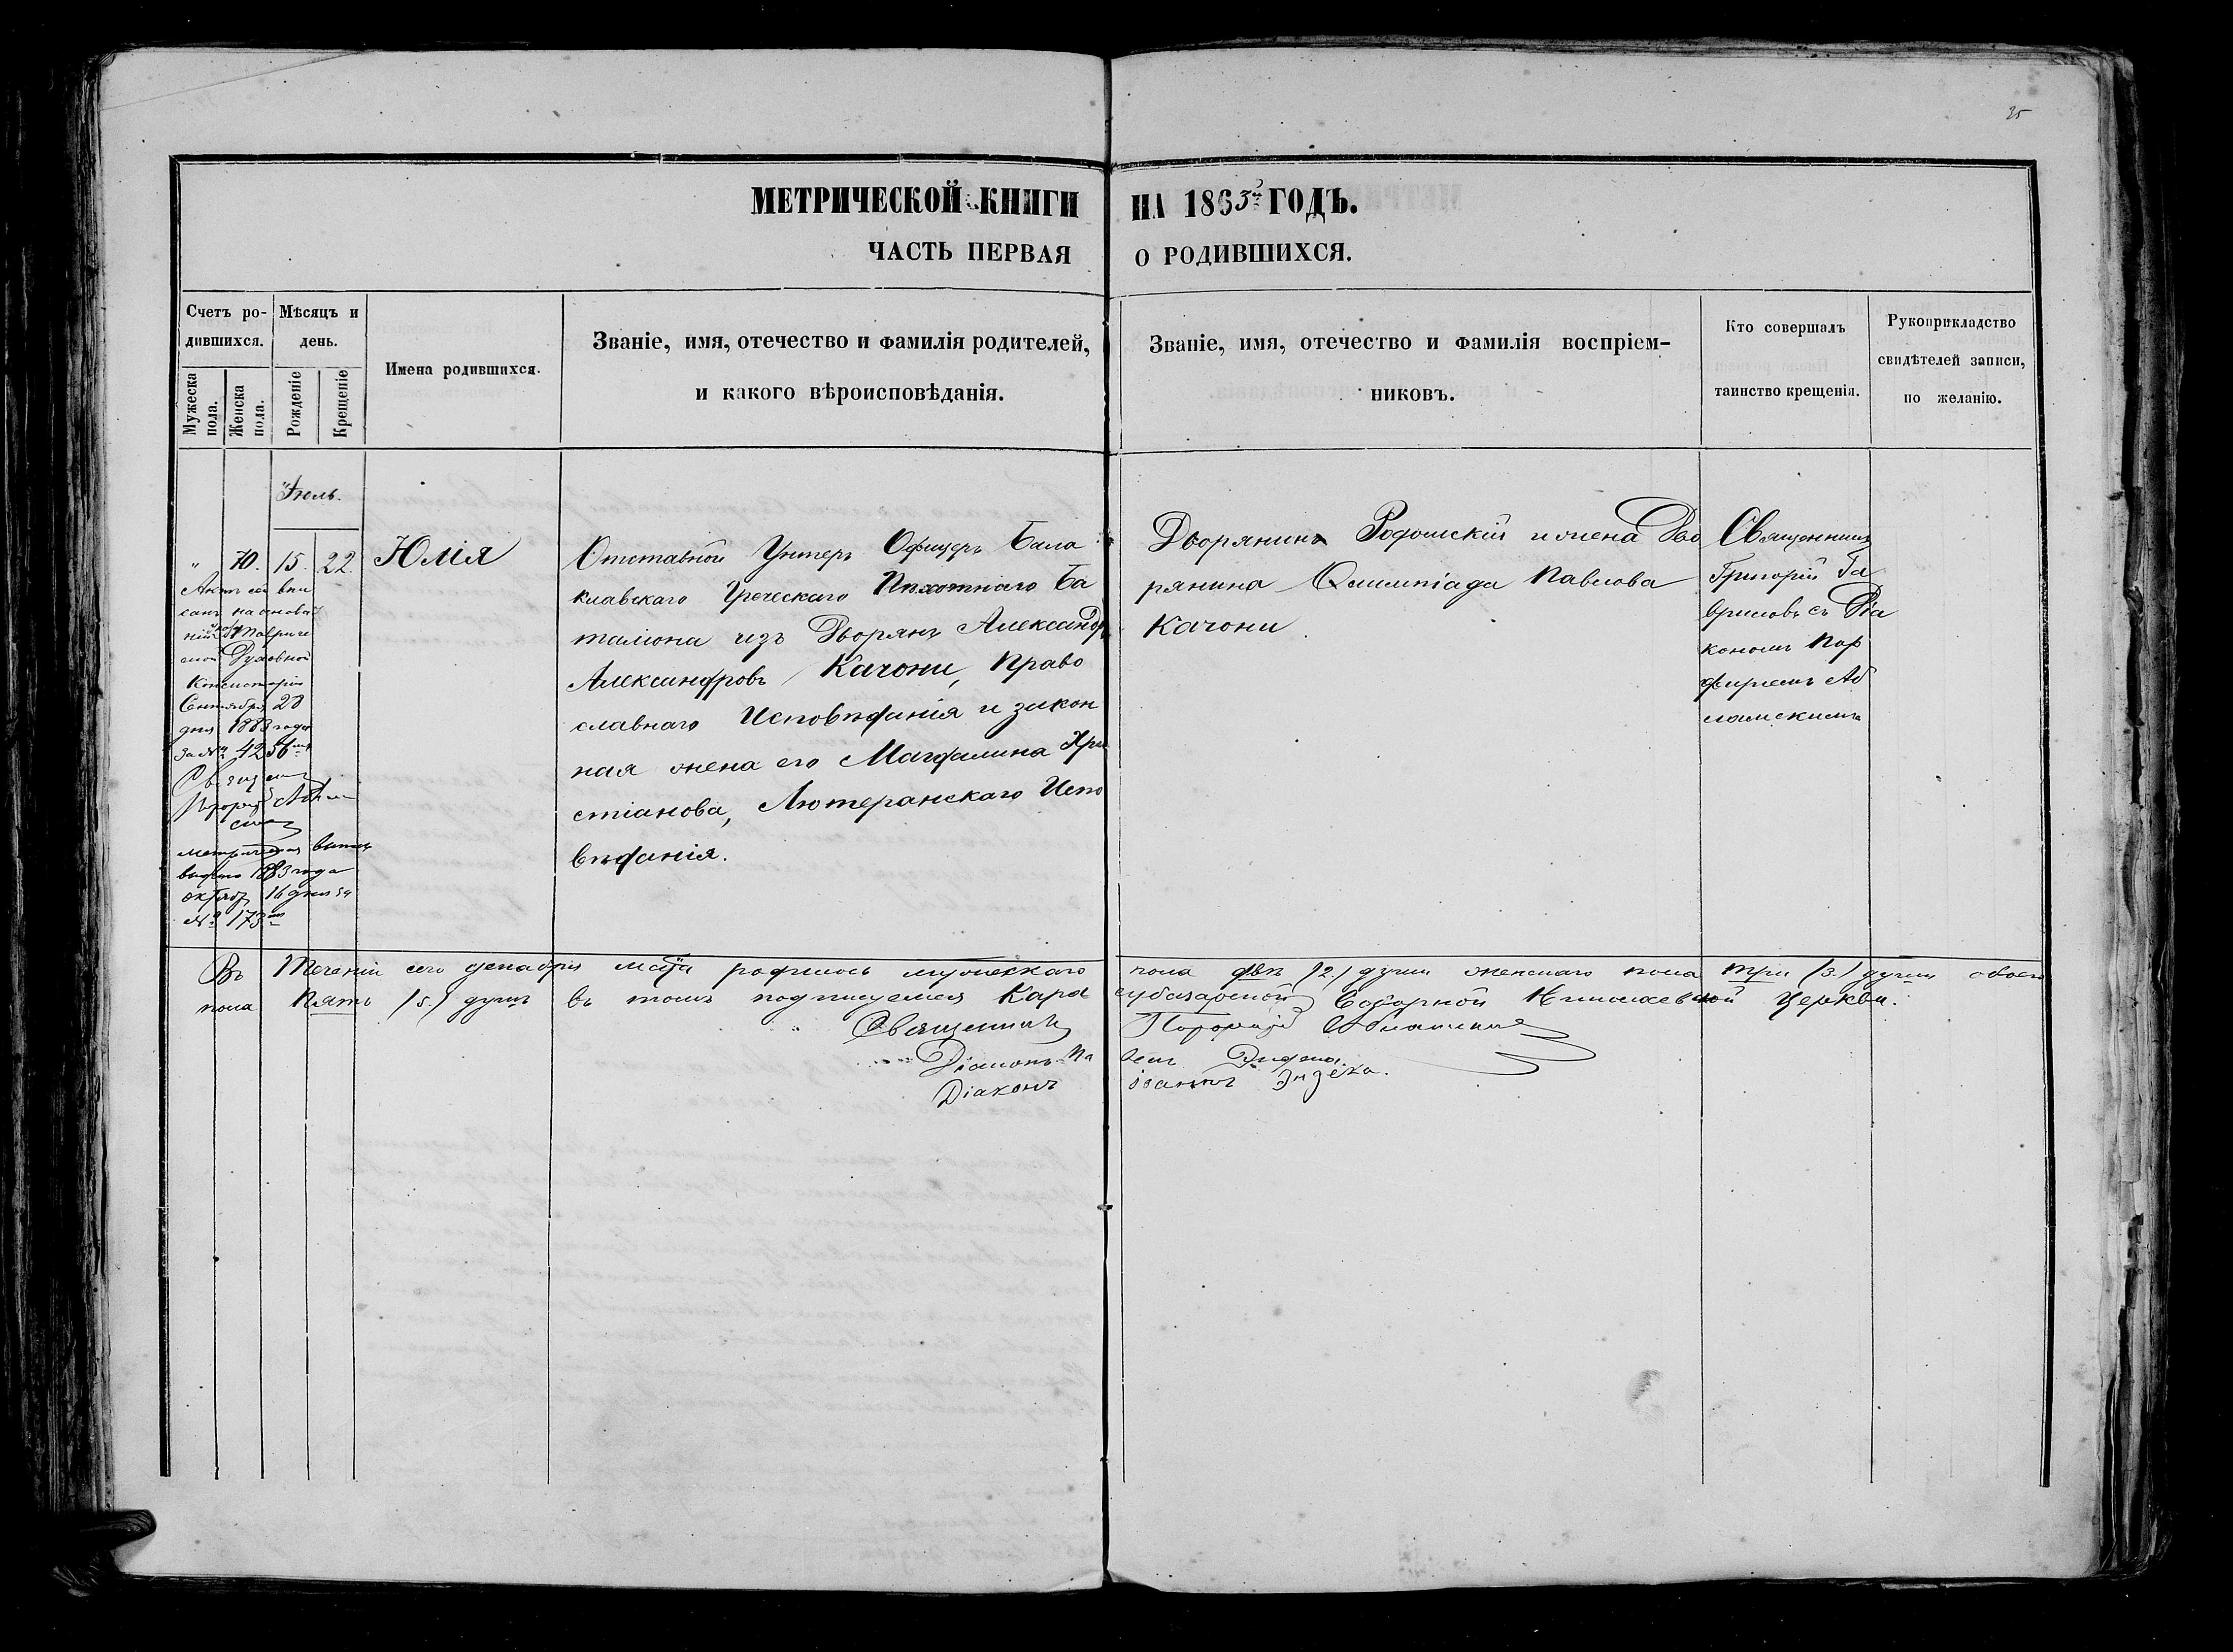 35
МЕТРИЧЕСКОЙ КНИГИ НА 1863й ГОДЪ.
ЧАСТЬ ПЕРВАЯ О РОДИВШИХСЯ.
Счетъ ро-
дившихся.
Мужеска пола.
Женска пола.
Мѣсяцъ и
день.
Рожденіе
Крещеніе
Имена родившихся.
Званіе, имя, отечество и фамилія родителей,
и какого вѣроисповѣданія.
Званіе, имя, отечество и фамилія воспріем-
никовъ.
Кто совершалъ
таинство крещенія.
Рукоприкладство
свидѣтелей записи,
по желанію.
Іюль.
" Ю. 15. 22
Актъ сей впи
санъ на основа
ніи Тавриче
ской Духовной
Консисторіи
Сентября 28
дня 1883 года
за № 4256мъ
Священ
метрическая
выдано 1883 года
октяб 16 дня за
№ 173мъ
Юлія
Отставной Унтеръ Офицеръ Бала
клавскаго Греческаго Пѣхотнаго Ба
таліона изъ Дворянъ Александръ
Александровъ Качони, Право
славнаго Исповѣданія и закон
ная жена его Магдалина Хри
стіанова, Лютеранскаго Испо
вѣданія.
Дворянинъ Родомскій и жена Дво
рянина Олимпіада Павлова
Качони
Священникъ
Григорій Га
вриловъ съ Діа
кономъ Пор
фиріемъ Аб
ламскимъ
Въ теченіи сего декабря мѣсяца родилось мужескаго пола двѣ (2.) души женскаго пола три (3.) души обоего
пола пять (5.) душъ въ томъ подписуемся Кара субазарской Соборной Николаевской Церкви.
Священникъ Порфирій Абламскій
Діаконъ Па велъ
Діаконъ Іоаннъ